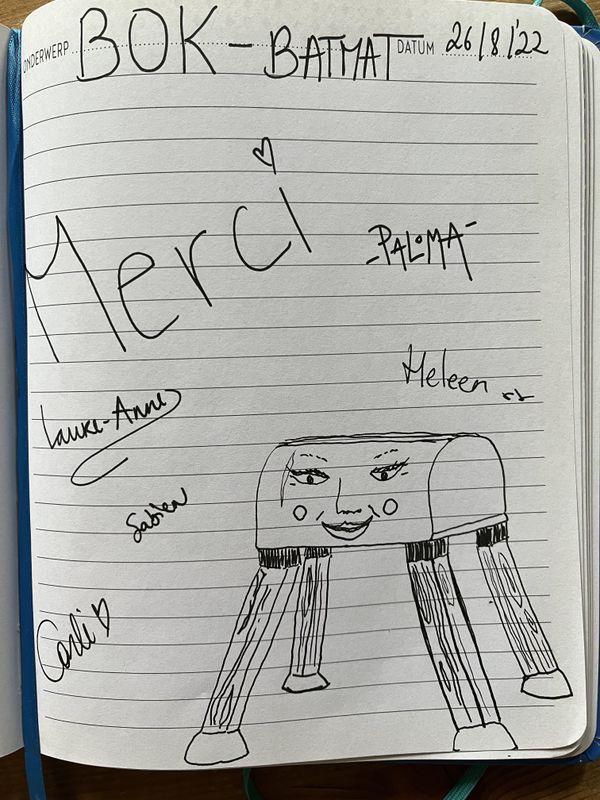 ONDERWERP BOK - BATMAT DATUM 26/8/'22
Merci
-PALOMA-
Heleen xx
Lauke-Anne
Sabien
Carli